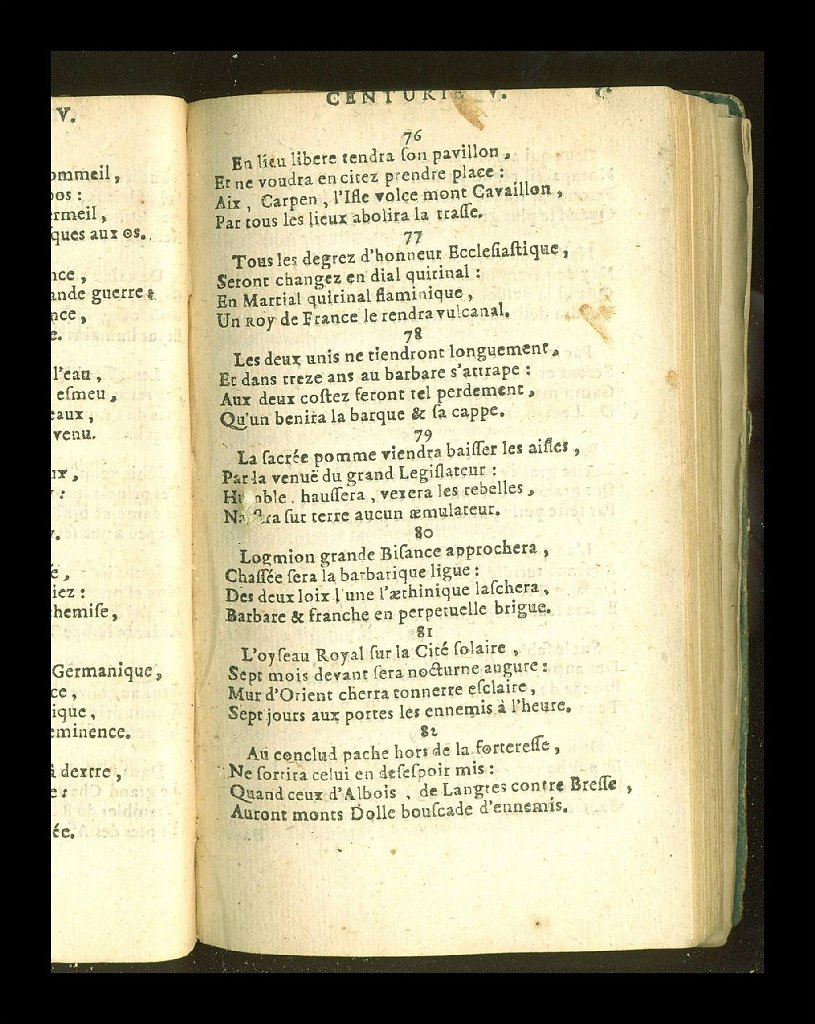 V.
ommeil,
pos :
ermeil,
ques aux os.
nce,
ande guerre:
nce,
e.
l'eau,
esmeu,
eaux,
venu.
ux,
:
.
,
iez :
chemise,
Germanique,
ce,
ique,
eminence.
à dextre,
e :
ée.
CENTURIE V.
76
En lieu libere tendra son pavillon,
Et ne voudra en citez prendre place :
Aix, Carpen, l'Isle volce mont Cavaillon,
Par tous les lieux abolira la trasse.
77
Tous les degrez d'honneur Ecclesiastique,
Seront changez en dial quirinal :
En Martial quirinal flaminique,
Un Roy de France le rendra vulcanal.
78
Les deux unis ne tiendront longuement,
Et dans treze ans au barbare s'attrape :
Aux deux costez feront tel perdement,
Qu'un benira la barque & sa cappe.
79
La sacrée pomme viendra baisser les aisles,
Par la venuë du grand Legislateur :
Humble, haussera, vexera les rebelles,
Naistra sur terre aucun æmulateur.
80
Logmion grande Bisance approchera,
Chassée sera la barbarique ligue :
Des deux loix l'une l'æthinique laschera,
Barbare & franche en perpetuelle brigue.
81
L'oyseau Royal sur la Cité solaire,
Sept mois devant sera nocturne augure :
Mur d'Orient cherra tonnerre esclaire,
Sept jours aux portes les ennemis à l'heure.
82
Au conclud pache hors de la forteresse,
Ne sortira celui en desespoir mis :
Quand ceux d'Albois, de Langres contre Bresse,
Auront monts Dolle bouscade d'ennemis.